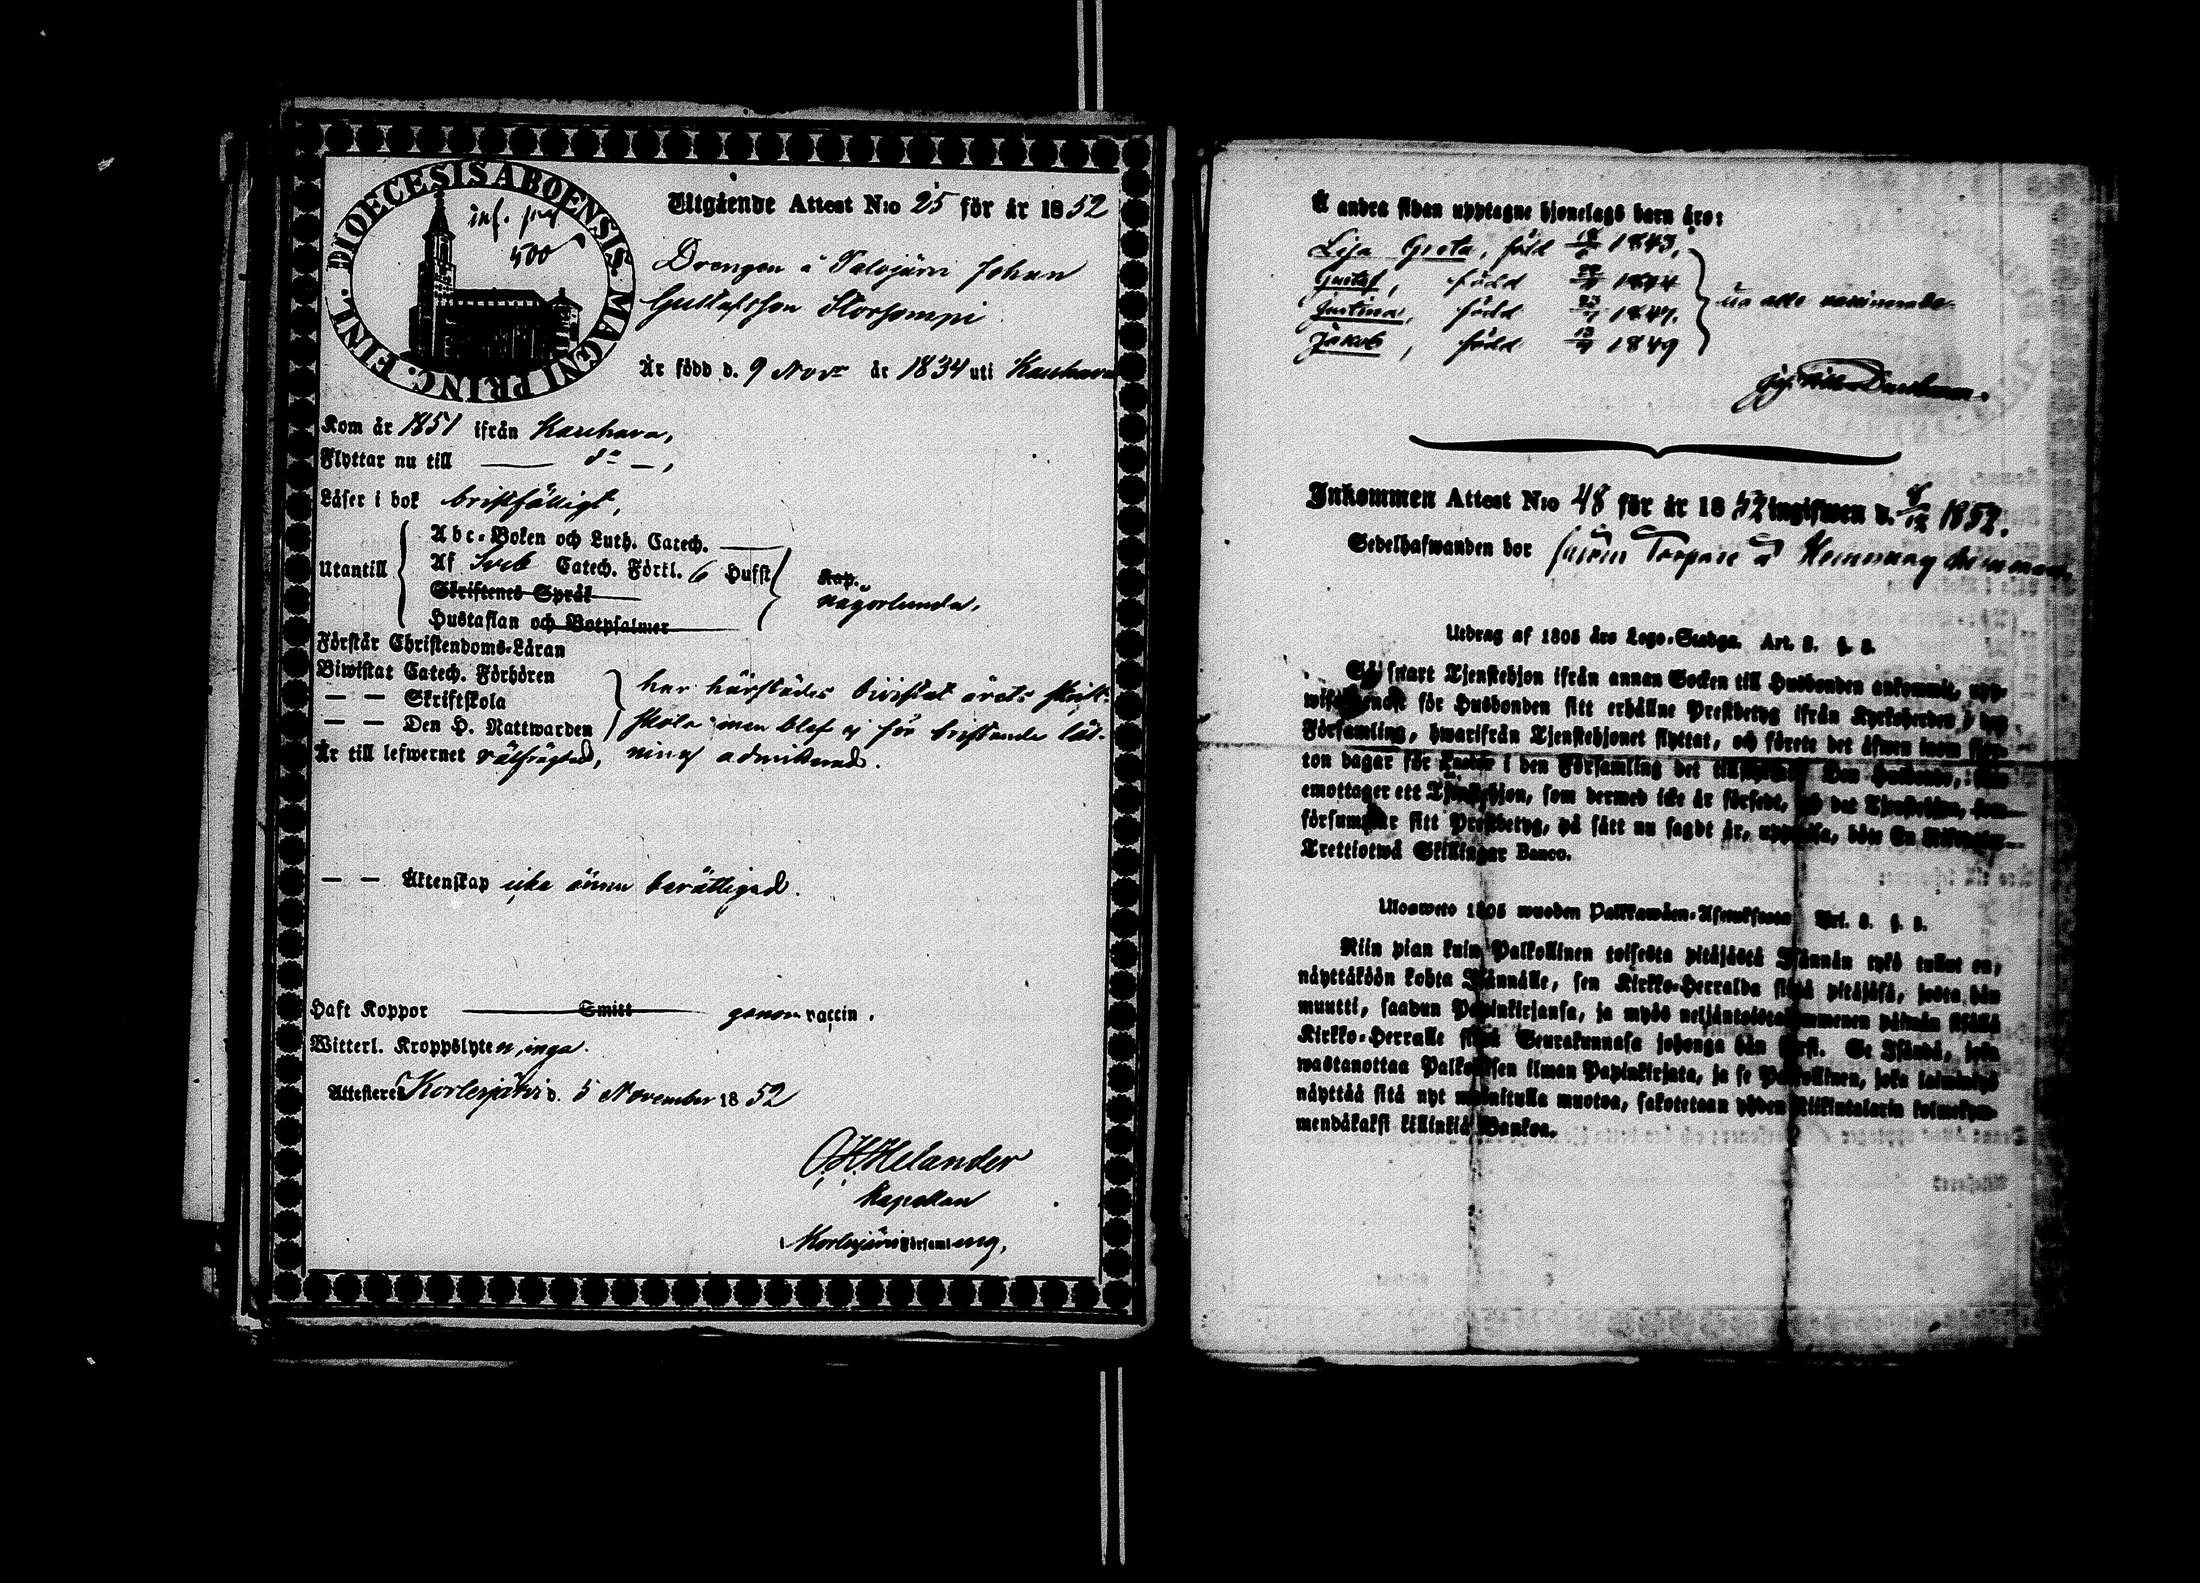 DIOECESIS ABOENSIS MAGNI PRINC. FINL.
inf. pag
500
Utgående Attest N:o 25 för år 1852
Drengen å Talvjärvi Johan
Gustafsson Storsompi
Är född d. 9 Nov:r år 1834 uti Kauhava
Kom år 1851 ifrån Kauhava,
Flyttar nu till — d:o —,
Läser i bok bristfälligt,
Utantill
Abc-Boken och Luth. Catech.
Af Sveb Catech. Förkl. 6 Hufst
Skriftenes Språk
Hustaflan och Botpsalmer
Kap.
någorlunda.
Förstår Christendoms-Läran
Biwistat Catech. Förhören
— — Skriftskola
— — Den H. Nattwarden
har härstädes bivistat årets skrift-
skola men blef ej för bristande läs-
ning admitterad.
Är till lefwernet välfrägdad,
— — Äktenskap icke ännu berättigad.
Haft Koppor Smitt genom vaccin.
Witterl. Kroppslyten, inga.
Attesteres Kortesjärvi d. 5 November 1852
O.H. Helander
Kapellan
Kortesjärvi Församling.
Å andra sidan upptagne hjonelags barn äro:
Lisa Greta, född 1843,
Gustaf, född 1844
Justina, född 1847.
Jakob, född 1849
alla vaccinerade.
Inkommen Attest N:o 48 för år 1852 ingifwen d. 8/12 1852.
Sedelhafwanden bor såsom Torpare å Hemming hemman.
Utdrag af 1805 års Lego-Stadga. Art. 3. §. 3.
Så snart Tjenstehjon ifrån annan Socken till Husbonden ankommit, upp-
wise för Husbonden sitt erhållne Prestbetyg ifrån Kyrkoherden i den
Församling, hwarifrån Tjenstehjonet flyttat, och förete det äfwen inom fjor-
ton dagar för Pastor i den Församling det Den Husbonde, som
emottager ett Tjenstehjon, som dermed icke är försedt, och det Tjenstehjon, som
försummar sitt Prestbetyg, på sätt nu sagdt är, uppwisa, böte En Riksdaler
Trettiotwå Skillingar Banco.
Ulosweto 1805 wuoden Palkkawäen-Asetuksesta Art. 3. §. 3.
Niin pian kuin Palkollinen toisesta pitäjästä Isännän tykö tullut on,
näyttäköön kohta Isännälle, sen Kirkko-Herralda siinä pitäjäsä, josta hän
muutti, saadun Papinkirjansa, ja myös neljäntoistakymmenen päiwän sisällä
Kirkko-Herralle siinä Seurakunnasa johonga hän Se Isändä, joka
wastanottaa Palkollisen ilman Papinkirjata, ja se Palkollinen, joka laiminlyö
näyttää sitä nyt mainitulla muotoa, sakotetaan yhden Riikintalarin kolmekym-
mendäkaksi killinkiä Bankoa.